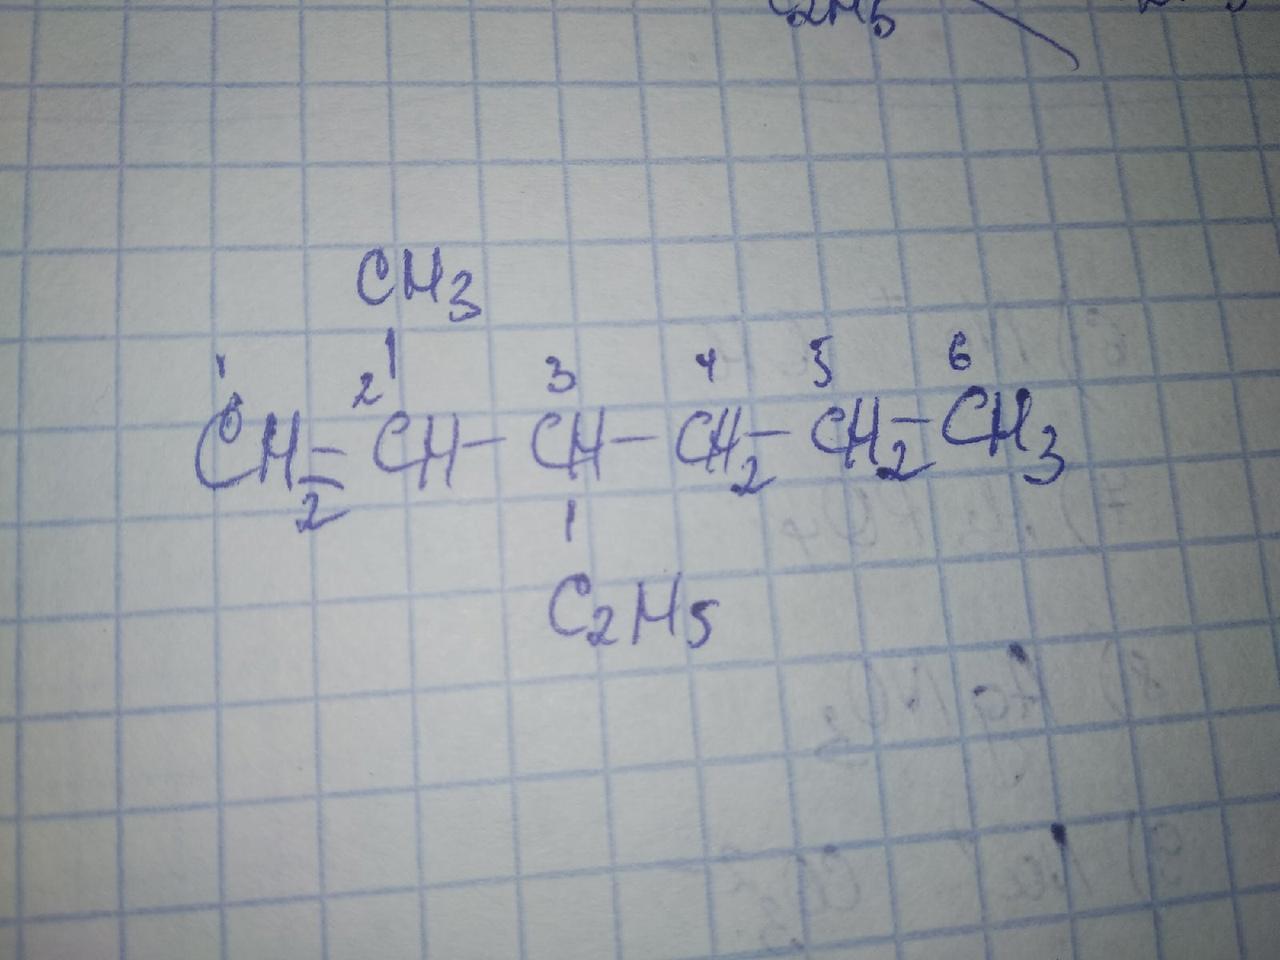 C2H5
CH3
1 2 3 4 5 6
CH2=CH-CH-CH2-CH2-CH3
C2H5